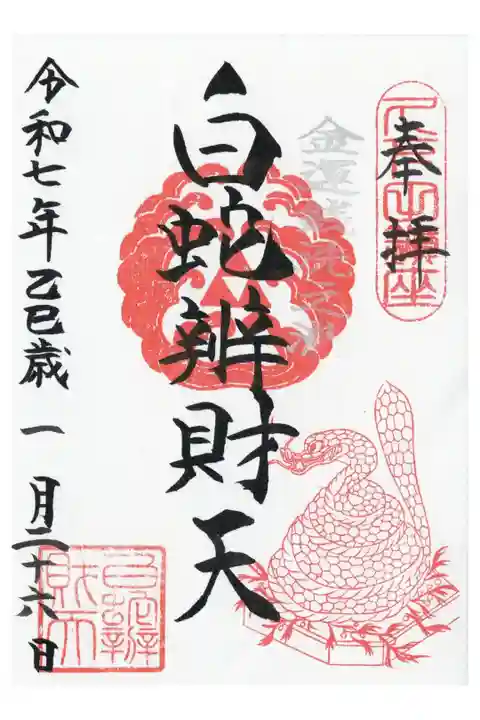 奉拝
白蛇辨財天
令和七年乙巳歳一月二十六日
白蛇辨
財天